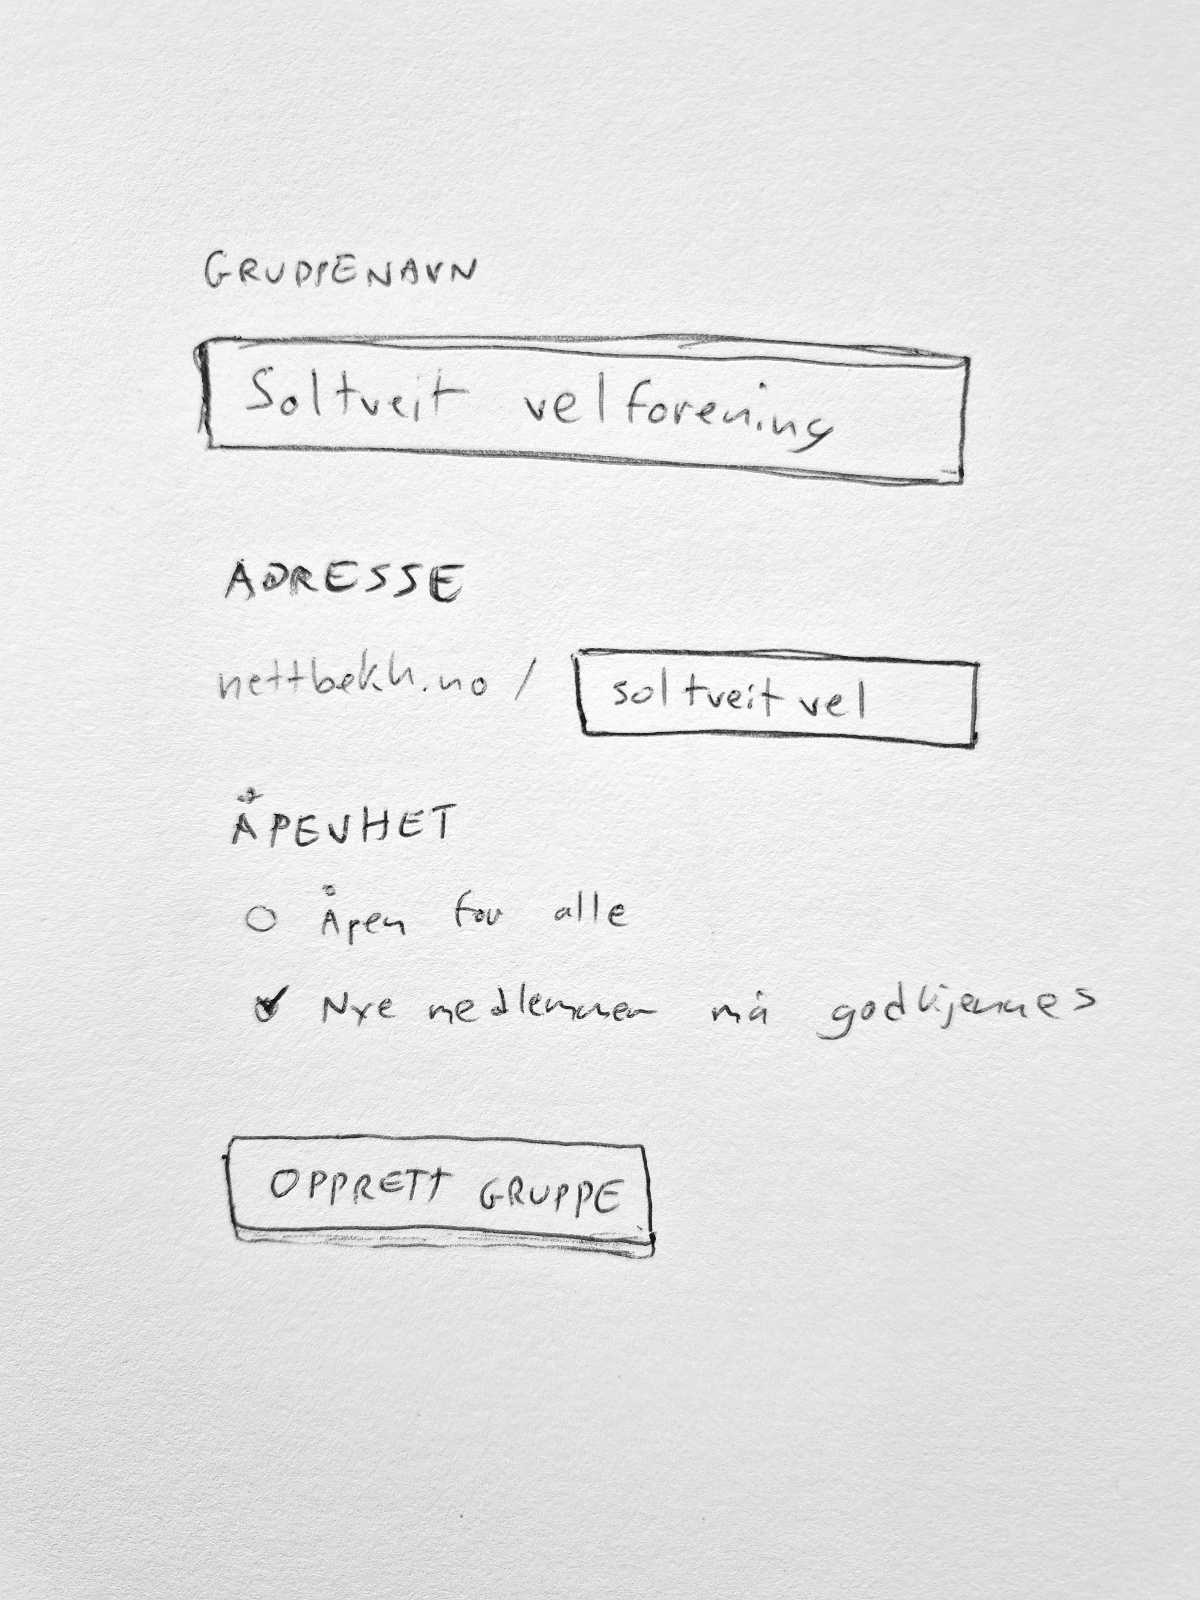 GRUPPENAVN
Soltveit velforening
ADRESSE
nettbekk.no /
soltveitvel
ÅPENHET
Åpen for alle
Nye medlemmer må godkjennes
OPPRETT GRUPPE